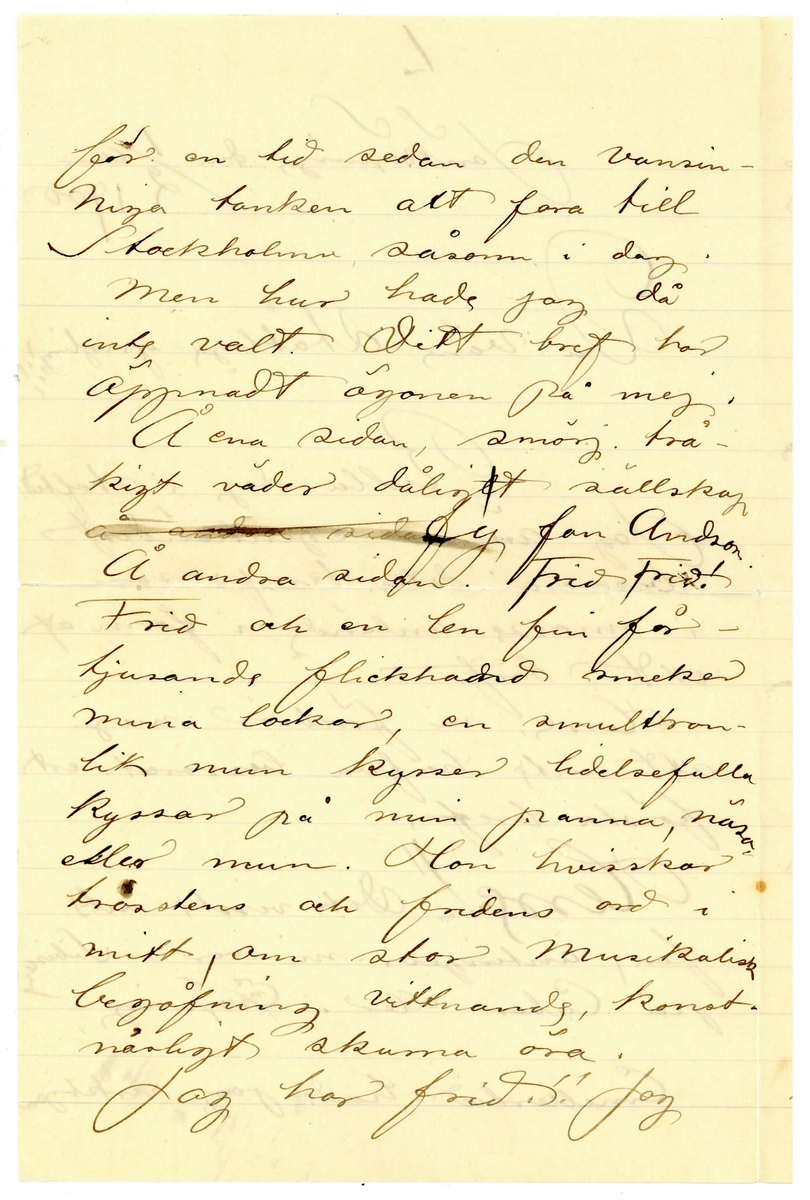 för en tid sedan den vansin-
niga tanken att fara till
Stockholm såsom i dag.
Men hur hade jag då
inte valt. Ditt bref har
äppnadt ögonen på mej.
Å ena sidan, smörj. trå-
kigt väder dåligt sällskap
å andra sidan fy fan Andson.
Å andra sidan. Frid Frid!
Frid och en len fin för-
tjusande flickhand smeker
mina lockar, en smultron-
lik mun kysser lidelsefulla
kyssar på min panna, näsa
eller mun. Hon hvisskar
trösstens och fridens ord i
mitt, om stor musikalisk
begåfning vittnande, konst-
närligt skurna öra.
Jag har frid!! Jag